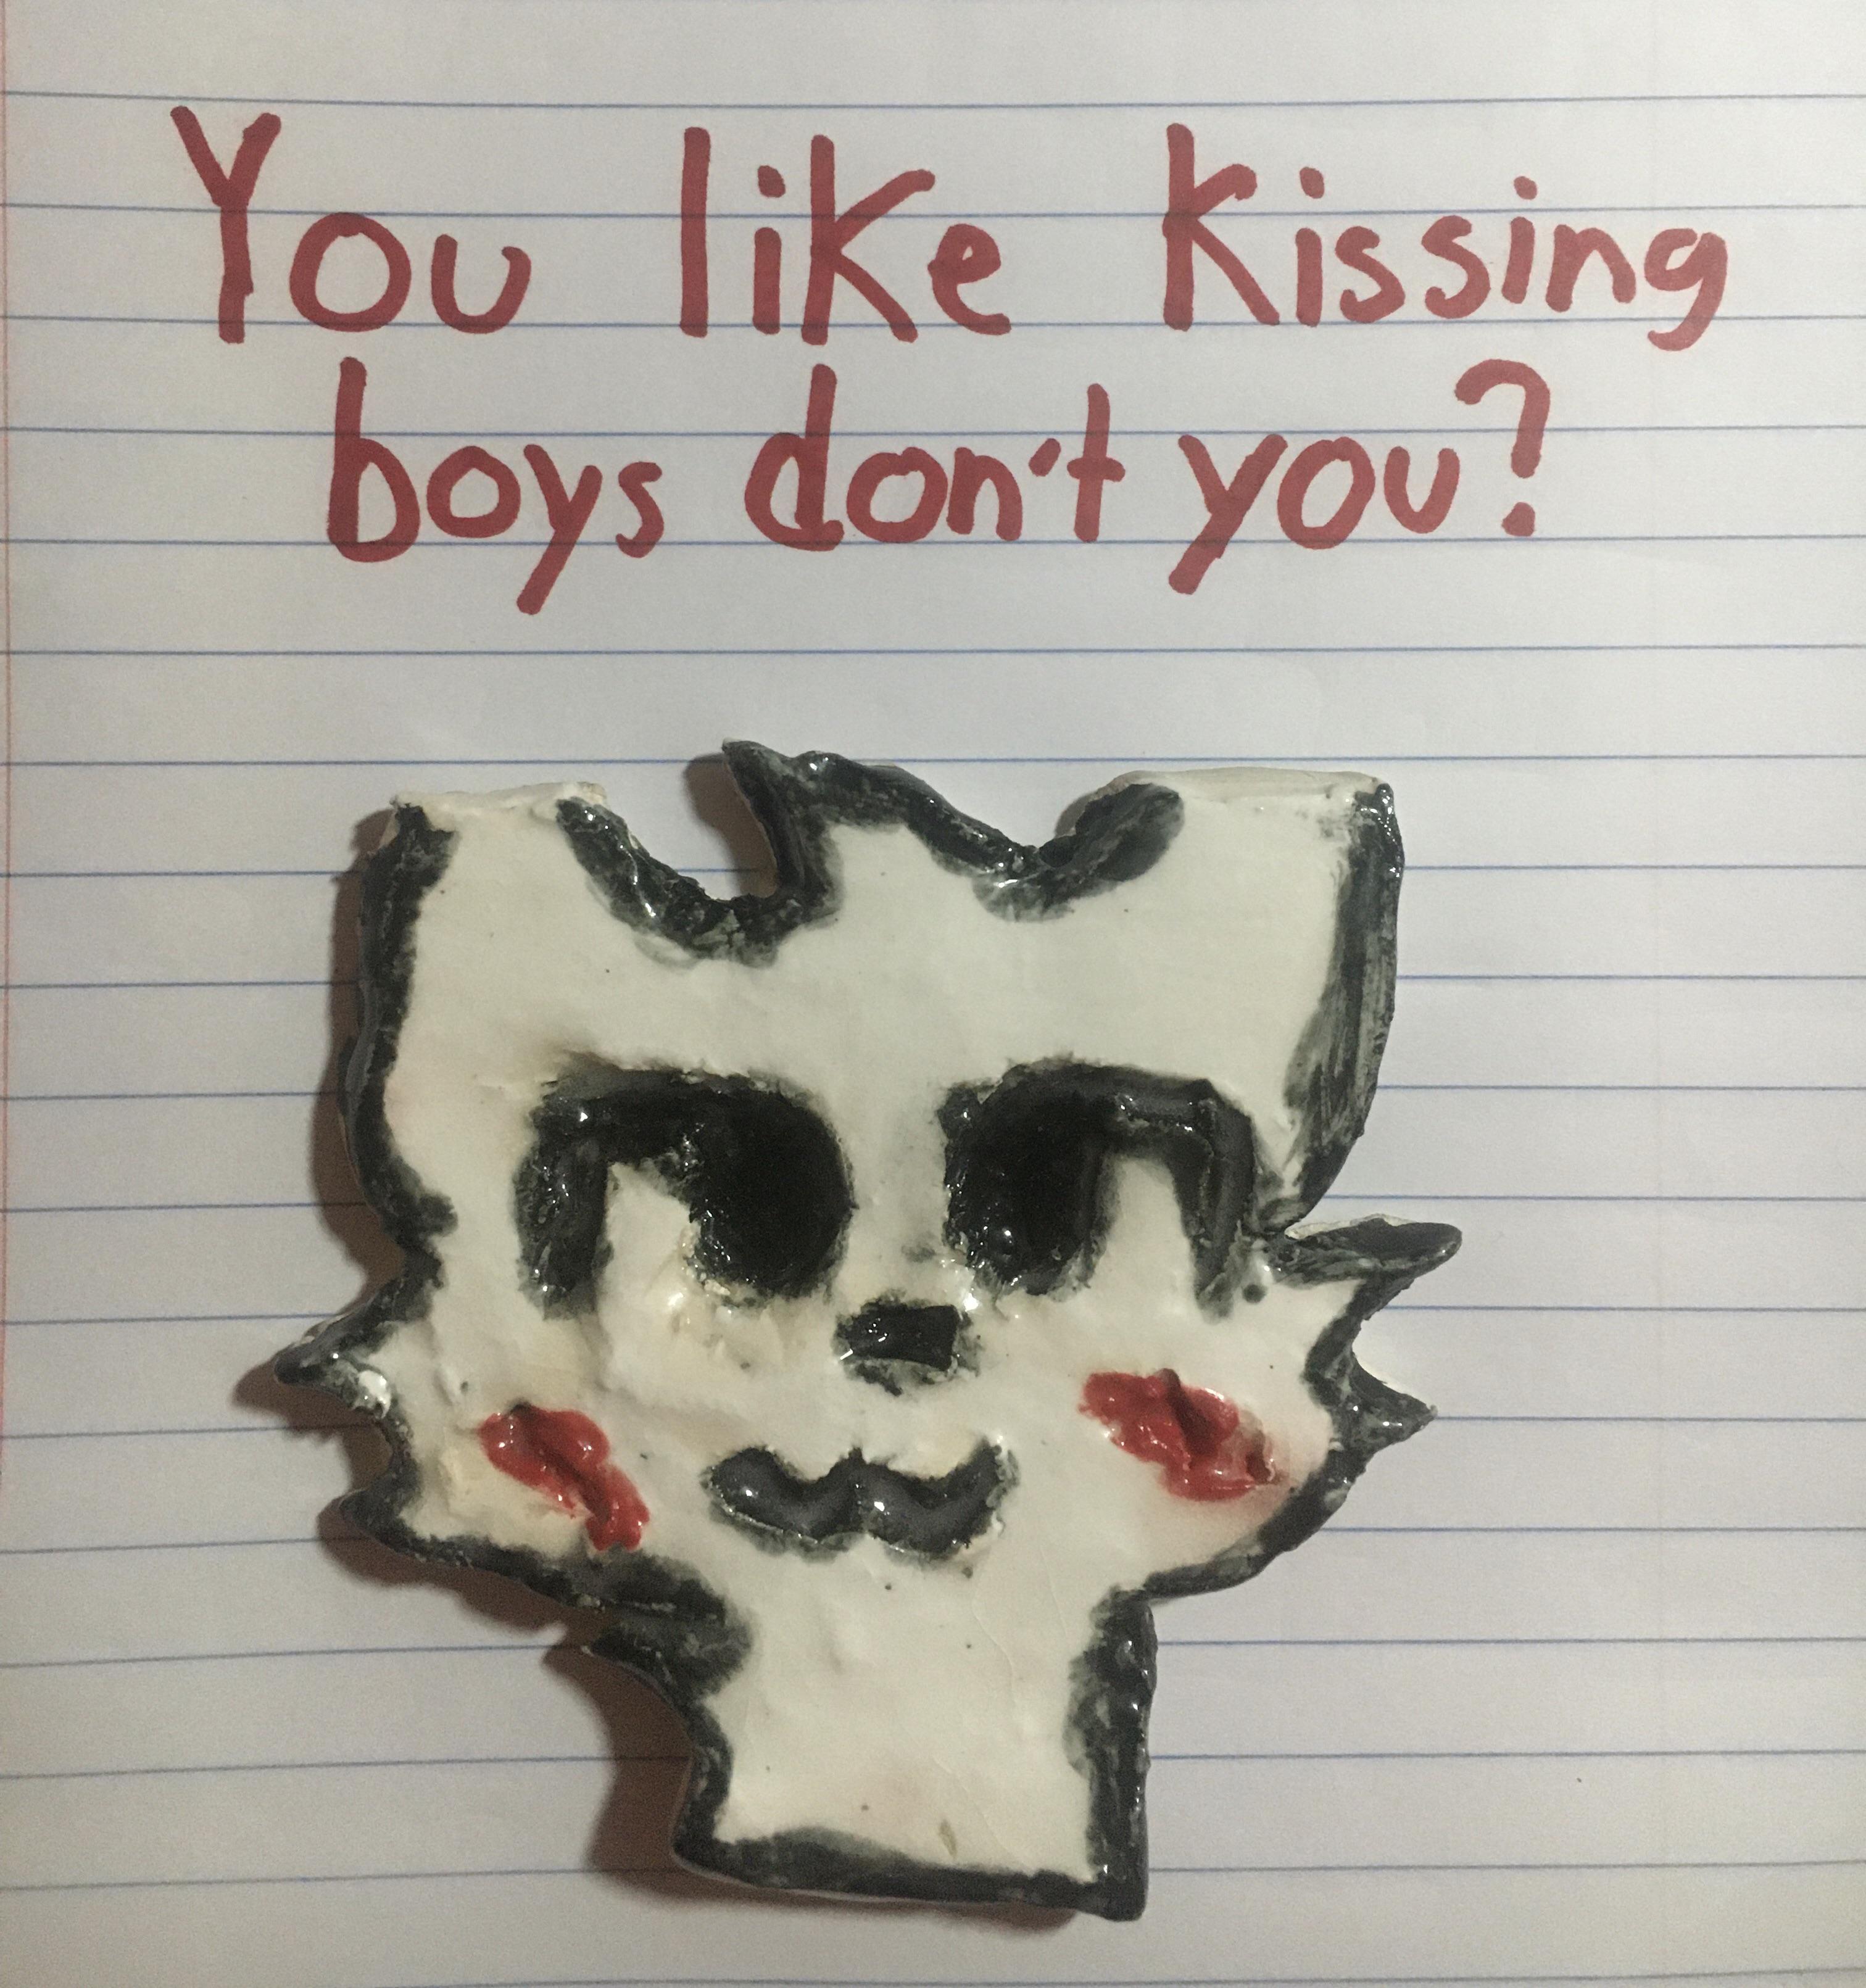 You like kissing
boys don't you?